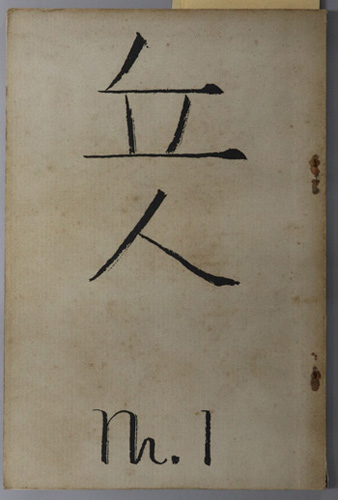 丘
人
Nr. 1